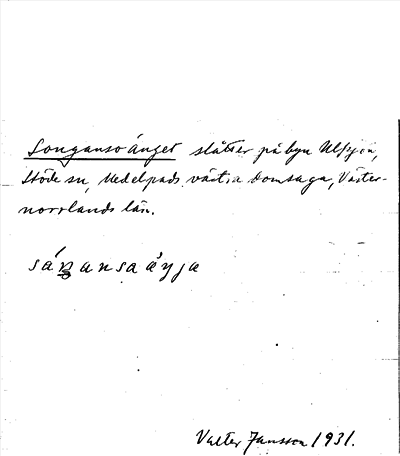 Songansoänget slåtter på byn Ulfsjön,
Stöde sn, Medelpads västra domsaga, Väster-
norrlands län.
Valter Jansson 1931.